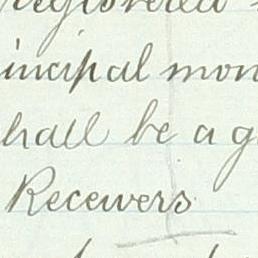 registered
incipal mon
hall be a g
Receivers